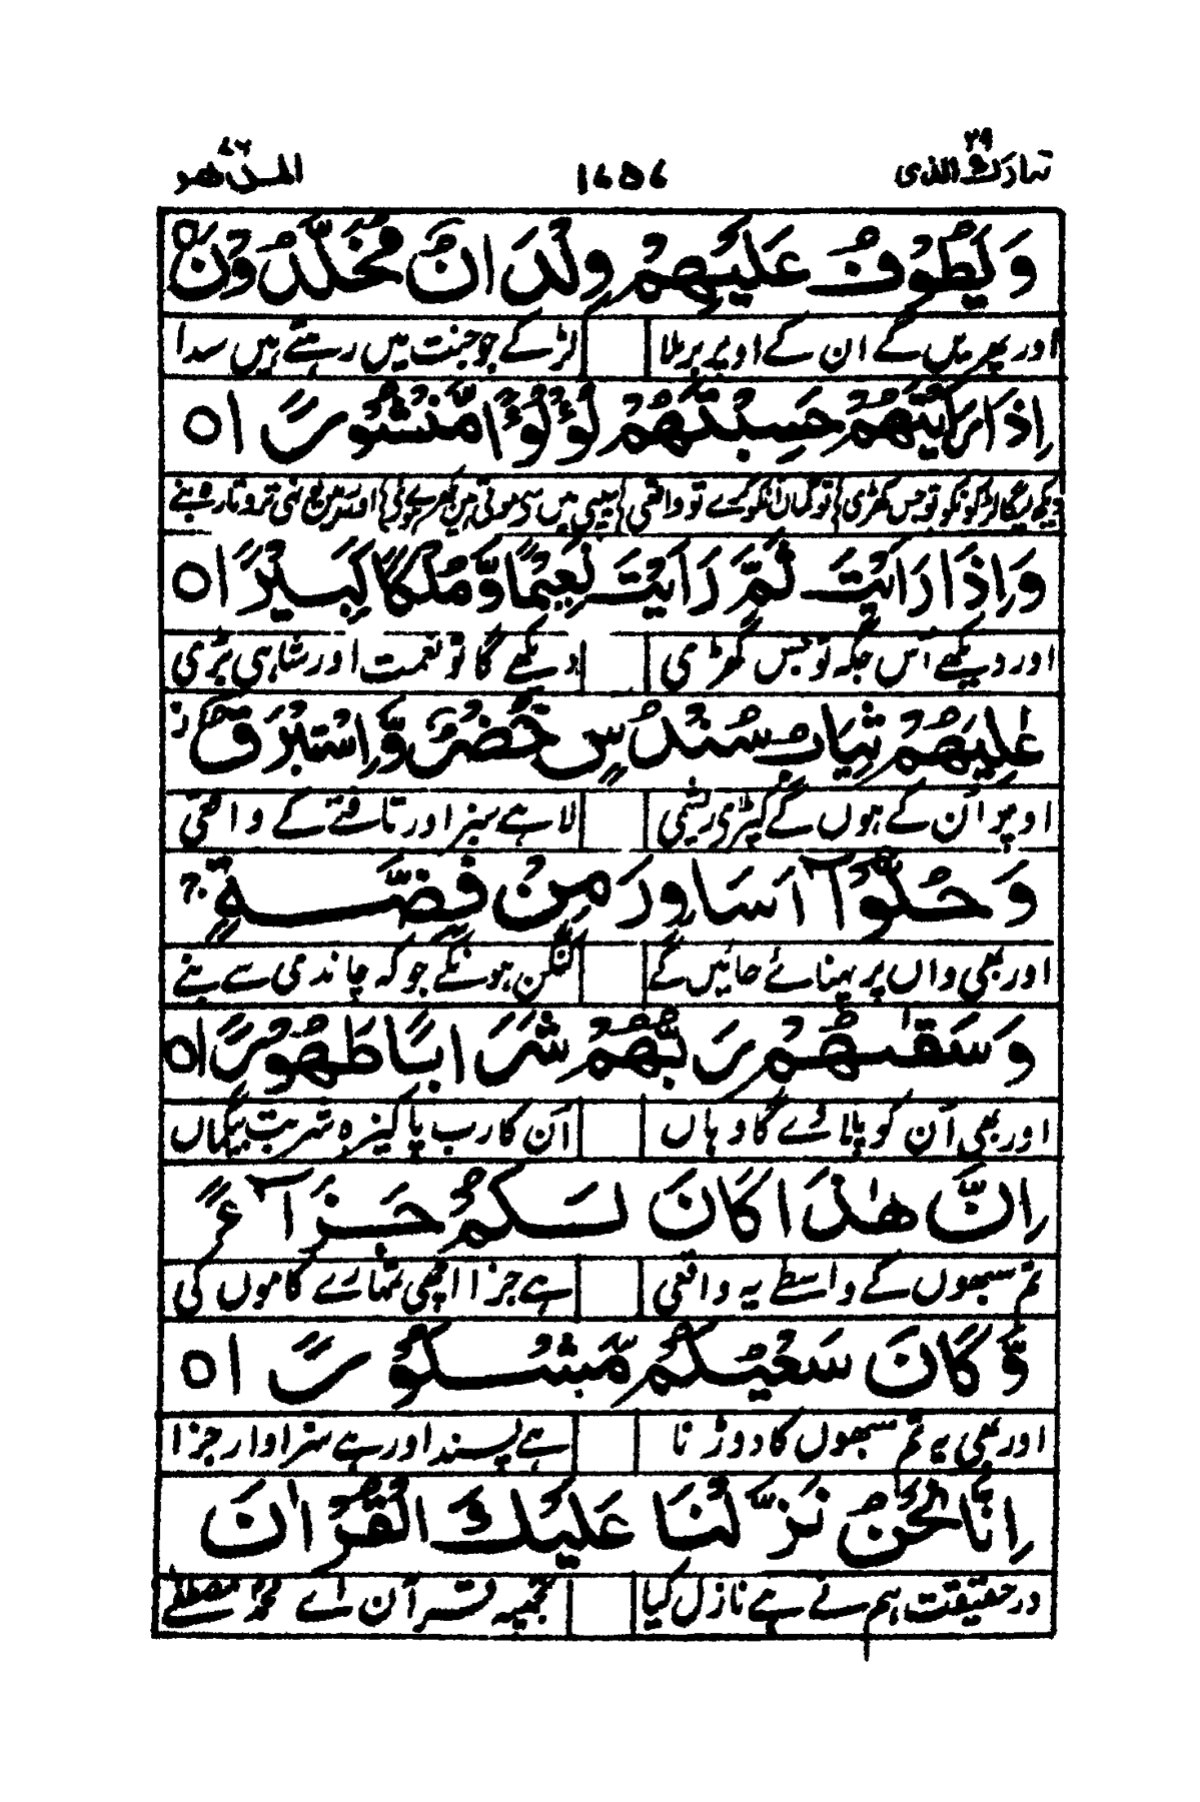 تبارك الذى ٢٩ ١٤٥٧ الدهر ٧٦
وَيَطُوْفُ عَلَيْهِمْ وِلْدَانٌ مُّخَلَّدُوْنَ ۵
اور پھریں گے ان کے اوپر برملا لڑکے جو جنت میں رہتے ہیں سدا
اِذَا رَاَيْتَهُمْ حَسِبْتَهُمْ لُؤْلُؤًا مَّنْثُوْرًا ۵
تو جس گھڑی تو گمان انکو کرے تو واقعی
وَاِذَا رَاَيْتَ ثَمَّ رَاَيْتَ نَعِيْمًا وَّمُلْكًا كَبِيْرًا ۵
اور دیکھے اُس جگہ تو جس گھڑی دیکھے گا تو نعمت اور شاہی بڑی
عٰلِيَهُمْ ثِيَابُ سُنْدُسٍ خُضْرٌ وَّاِسْتَبْرَقٌ ز
اوپر اُن کے ہوں گے کپڑے ریشمی لاہے سبز اور تافتے کے واقعی
وَحُلُّوْٓا اَسَاوِرَ مِنْ فِضَّةٍ ج
اور بھی واں پر پہنائے جائیں گے کنگن ہونگے جو کہ چاندی سے بنے
وَسَقٰىهُمْ رَبُّهُمْ شَرَابًا طَهُوْرًا ۵
اور بھی اُن کو پلائے گا وہاں اُن کا رب پاکیزہ شربت بیگماں
اِنَّ هٰذَا كَانَ لَكُمْ جَزَآءً
تم سبھوں کے واسطے یہ واقعی ہے جزا اچھی تمہارے کاموں کی
وَّكَانَ سَعْيُكُمْ مَّشْكُوْرًا ۵
اور بھی یہ تم سبھوں کا دوڑنا ہے پسند اور ہے سزاوار جزا
اِنَّا نَحْنُ نَزَّلْنَا عَلَيْكَ الْقُرْاٰنَ
درحقیقت ہم نے ہے نازل کیا تجھپہ قرآن اے محمد مصطفٰے